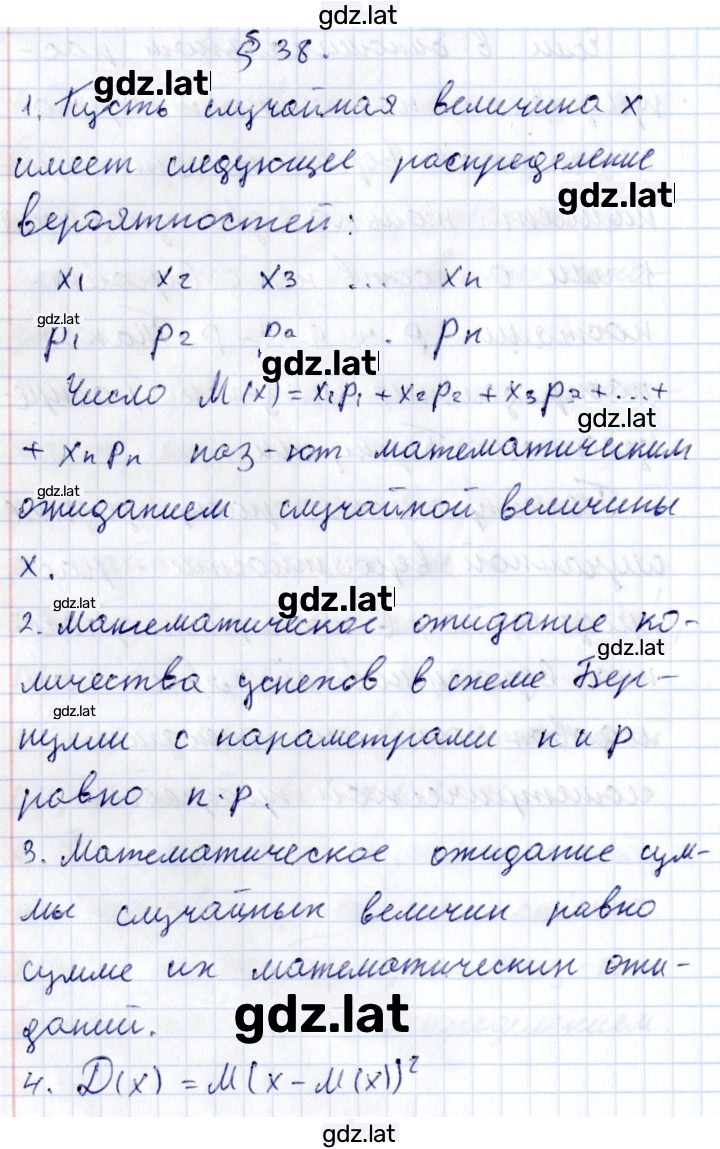 gdz.lat
§ 38.
gdz.lat
1. Пусть случайная величина x
имеет следующее распределение
gdz.lat
вероятностей:
x1 x2 x3 ... xn
gdz.lat
p1 p2 ... pn
gdz.lat
Число M(x) = x1p1 + x2p2 + x3p3 + ... +
gdz.lat
+ xn pn наз-ют математическим
gdz.lat
ожиданием случайной величины
x.
gdz.lat gdz.lat
2. Математическое ожидание ко-
gdz.lat
личества успехов в схеме Бер-
gdz.lat
нулли с параметрами n и p
равно n·p.
3. Математическое ожидание сум-
мы случайных величин равно
сумме их математических ожи-
gdz.lat
даний.
4. D(x) = M(x – M(x))²
gdz.lat